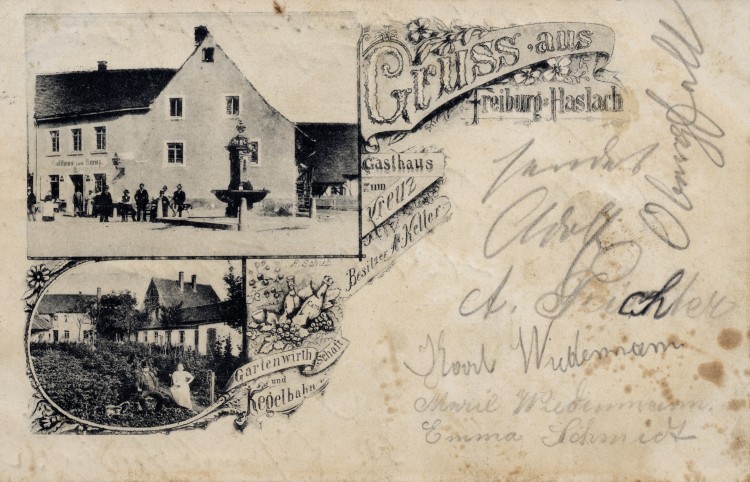 Gruss aus
Freiburg-Haslach
Gasthaus
zum
Kreuz
Besitzer A. Keller
Gasthaus zum Kreuz
Gartenwirthschaft
und
Kegelbahn
sendet
Adolf
A.
Karl Wiedemann
Marie Wiedenmann.
Emma Schmidt